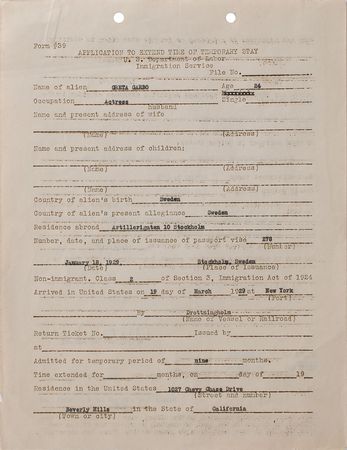 Form 639
APPLICATION TO EXTEND TIME OF TEMPORARY STAY
U. S. Department of Labor
Immigration Service
File No.
Name of alien GRETA GARBO Age 24
Occupation Actress Single
husband
Name and present address of wife
(Name) (Address)
Name and present address of children:
(Name) (Address)
(Name) (Address)
Country of alien's birth Sweden
Country of alien's present allegiance Sweden
Residence abroad Artillerigatan 10 Stockholm
Number, date, and place of issuance of passport visa 278
(Number)
January 18, 1929, Stockholm, Sweden
(Date) (Place of Issuance)
Non-immigrant. Class 2 of Section 3, Immigration Act of 1924
Arrived in United States on 19 day of March 1929 at New York
(Port)
by Drottningholm
(Name of Vessel or Railroad)
Return Ticket No. Issued by
at
Admitted for temporary period of nine months.
Time extended for months, on day of 19
Residence in the United States 1027 Chevy Chase Drive
(Street and number)
Beverly Hills in the State of California
(Town or city)